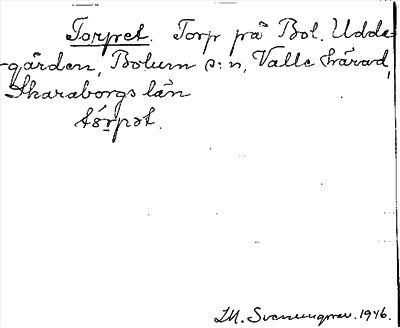 Torpet. Torp på Bol. Udde-
gården, Bolum s:n, Valle härad,
Skaraborgs län
tórpət.
1946.